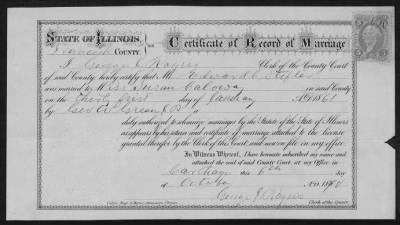 STATE OF ILLINOIS, ss Certificate of Record of Marriage
Hancock COUNTY.
I George J. Rogers Clerk of the County Court
of said County, hereby certify that Mr. Edward C.
was married to Miss Susan
on the Thirty first day of January A.D. 18
by Geo W.
duly authorized to solemnize marriages by the Statute of the State of Illinois
as appears by his return and certificate of marriage attached to the license
granted therefor by the Clerk of the Court, and now on file in my office.
In Witness Whereof, I have hereunto subscribed my name and
attached the seal of said County Court, at my Office in
Carthage this 6th day
of October A.D. 18
George J. Rogers